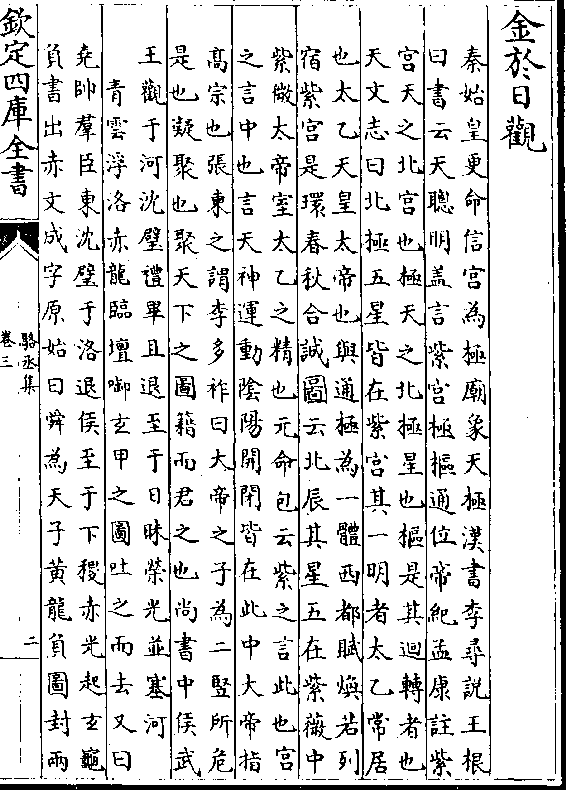 金於日觀
秦始皇更命信宮為極廟象天極漢書李尋說王根
曰書云天聰明盖言紫宮極樞通位帝紀孟康註紫
宮天之北宮也極天之北極星也樞是其迴轉者也
天文志曰北極五星皆在紫宮其一明者太乙常居
也太乙天皇太帝也與通極為一體西都賦煥若列
宿紫宮是環春秋合誠圖云北辰其星五在紫薇中
紫微太帝室太乙之精也元命包云紫之言此也宮
之言中也言天神運動陰陽開閉皆在此中大帝指
髙宗也張東之謂李多祚曰大帝之子為二豎所危
是也凝聚也聚天下之圖籍而君之也尚書中侯武
王觀于河沈璧禮畢且退至于日昧榮光並塞河
青雲浮洛赤龍臨壇啣玄甲之圖吐之而去又曰
堯帥羣臣東沈璧于洛退侯至于下稷赤光起玄龜
負書出赤文成字原始曰舜為天子黃龍負圖封兩
欽定四庫全書
駱丞集
卷三
二